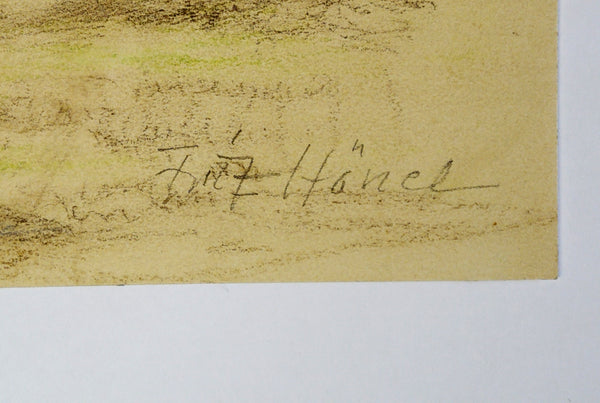 Fritz Hänel